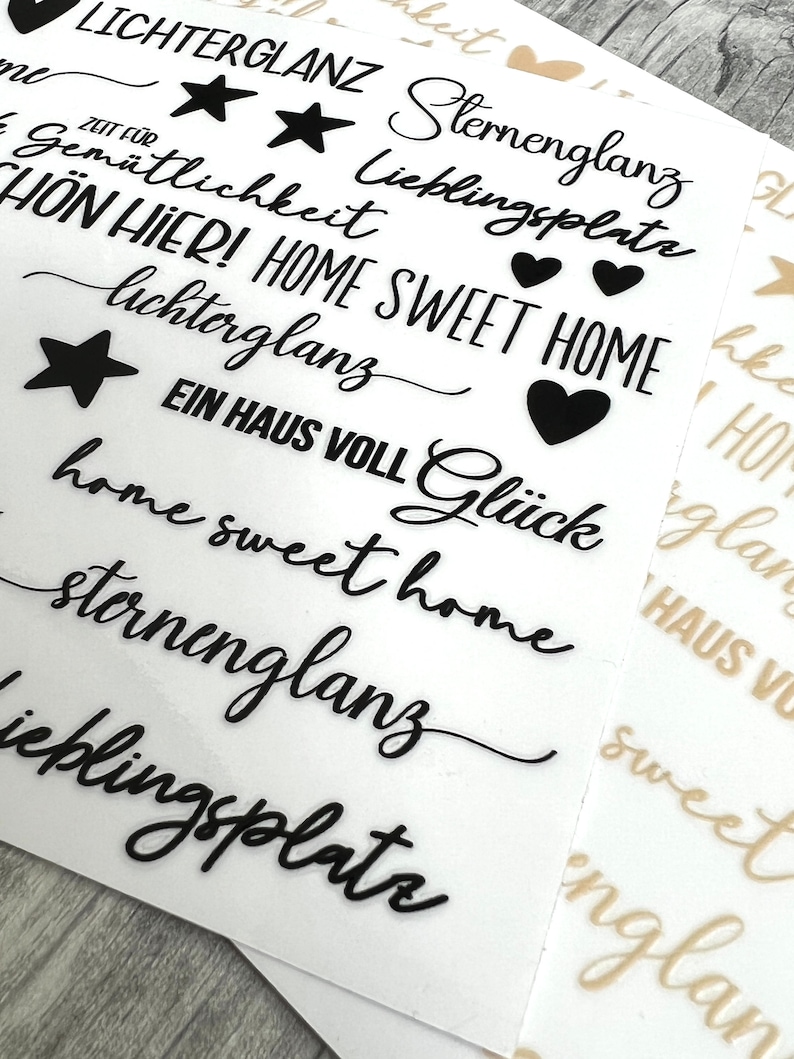 LICHTERGLANZ
Sternenglanz
ZEIT FÜR
Gemütlichkeit
Lieblingsplatz
HIER!
HOME SWEET HOME
lichterglanz
EIN HAUS VOLL Glück
home sweet home
sternenglanz
Lieblingsplatz
HAUS
sweet